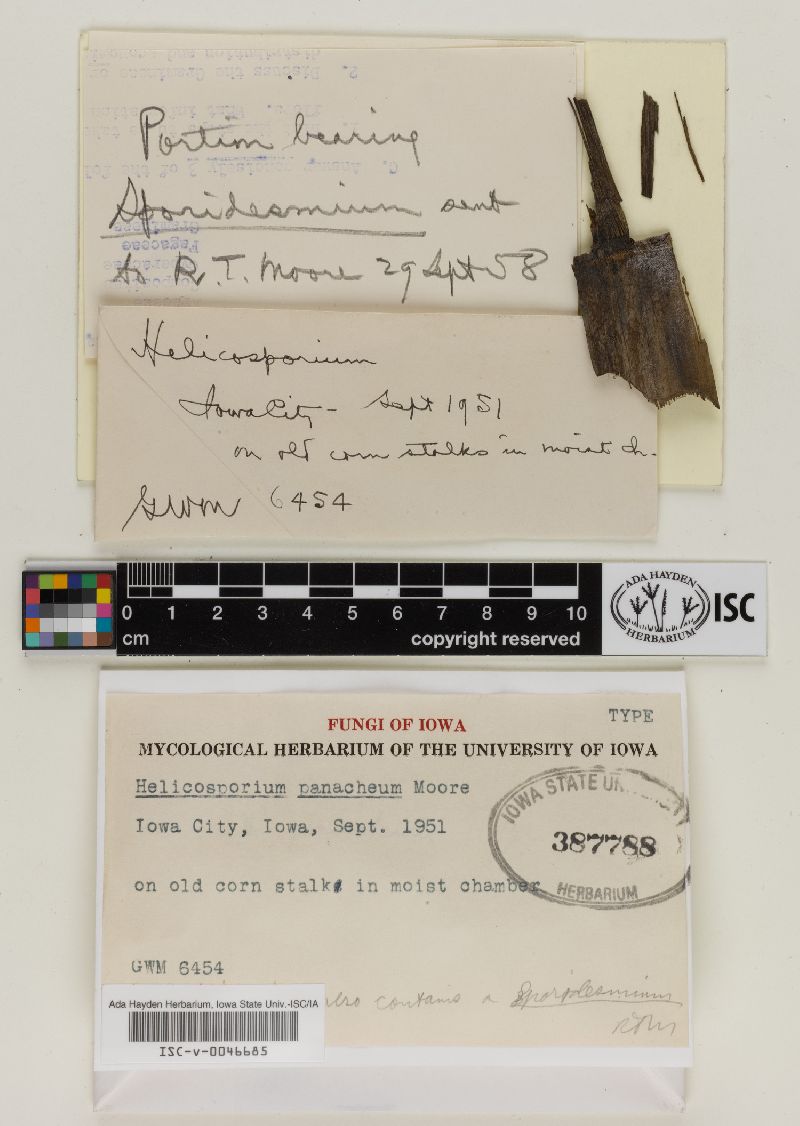 Portion bearing
Sporidesmium sent
to R. T. Moore 29 Sept 58
Fagaceae
Helicosporium
Iowa City - Sept 1951
on old corn stalks in moist ch.
GWM 6454
0 1 2 3 4 5 6 7 8 9 10
cm
copyright reserved
ADA HAYDEN
HERBARIUM
ISC
TYPE
FUNGI OF IOWA
MYCOLOGICAL HERBARIUM OF THE UNIVERSITY OF IOWA
Helicosporium panacheum Moore
Iowa City, Iowa, Sept. 1951
IOWA STATE UNIVERSITY
387788
HERBARIUM
on old corn stalk in moist chamber
GWM 6454
also contains a Sporidesmium
RTM
Ada Hayden Herbarium, Iowa State Univ.-ISC/IA
ISC-v-0046685